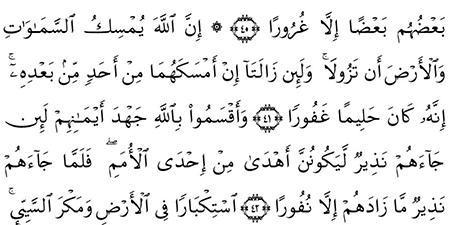 بَعۡضُهُم بَعۡضًا إِلَّا غُرُورًا ﴿٤٠﴾ ۞ إِنَّ ٱللَّهَ يُمۡسِكُ ٱلسَّمَـٰوَٰتِ
وَٱلۡأَرۡضَ أَن تَزُولَاۚ وَلَئِن زَالَتَآ إِنۡ أَمۡسَكَهُمَا مِنۡ أَحَدٍ مِّنۢ بَعۡدِهِۦٓۚ
إِنَّهُۥ كَانَ حَلِيمًا غَفُورًا ﴿٤١﴾ وَأَقۡسَمُواْ بِٱللَّهِ جَهۡدَ أَيۡمَـٰنِهِمۡ لَئِن
جَآءَهُمۡ نَذِيرٌ لَّيَكُونُنَّ أَهۡدَىٰ مِنۡ إِحۡدَى ٱلۡأُمَمِۖ فَلَمَّا جَآءَهُمۡ
نَذِيرٌ مَّا زَادَهُمۡ إِلَّا نُفُورًا ﴿٤٢﴾ ٱسۡتِكۡبَارًا فِى ٱلۡأَرۡضِ وَمَكۡرَ ٱلسَّيِّىِٕۚ